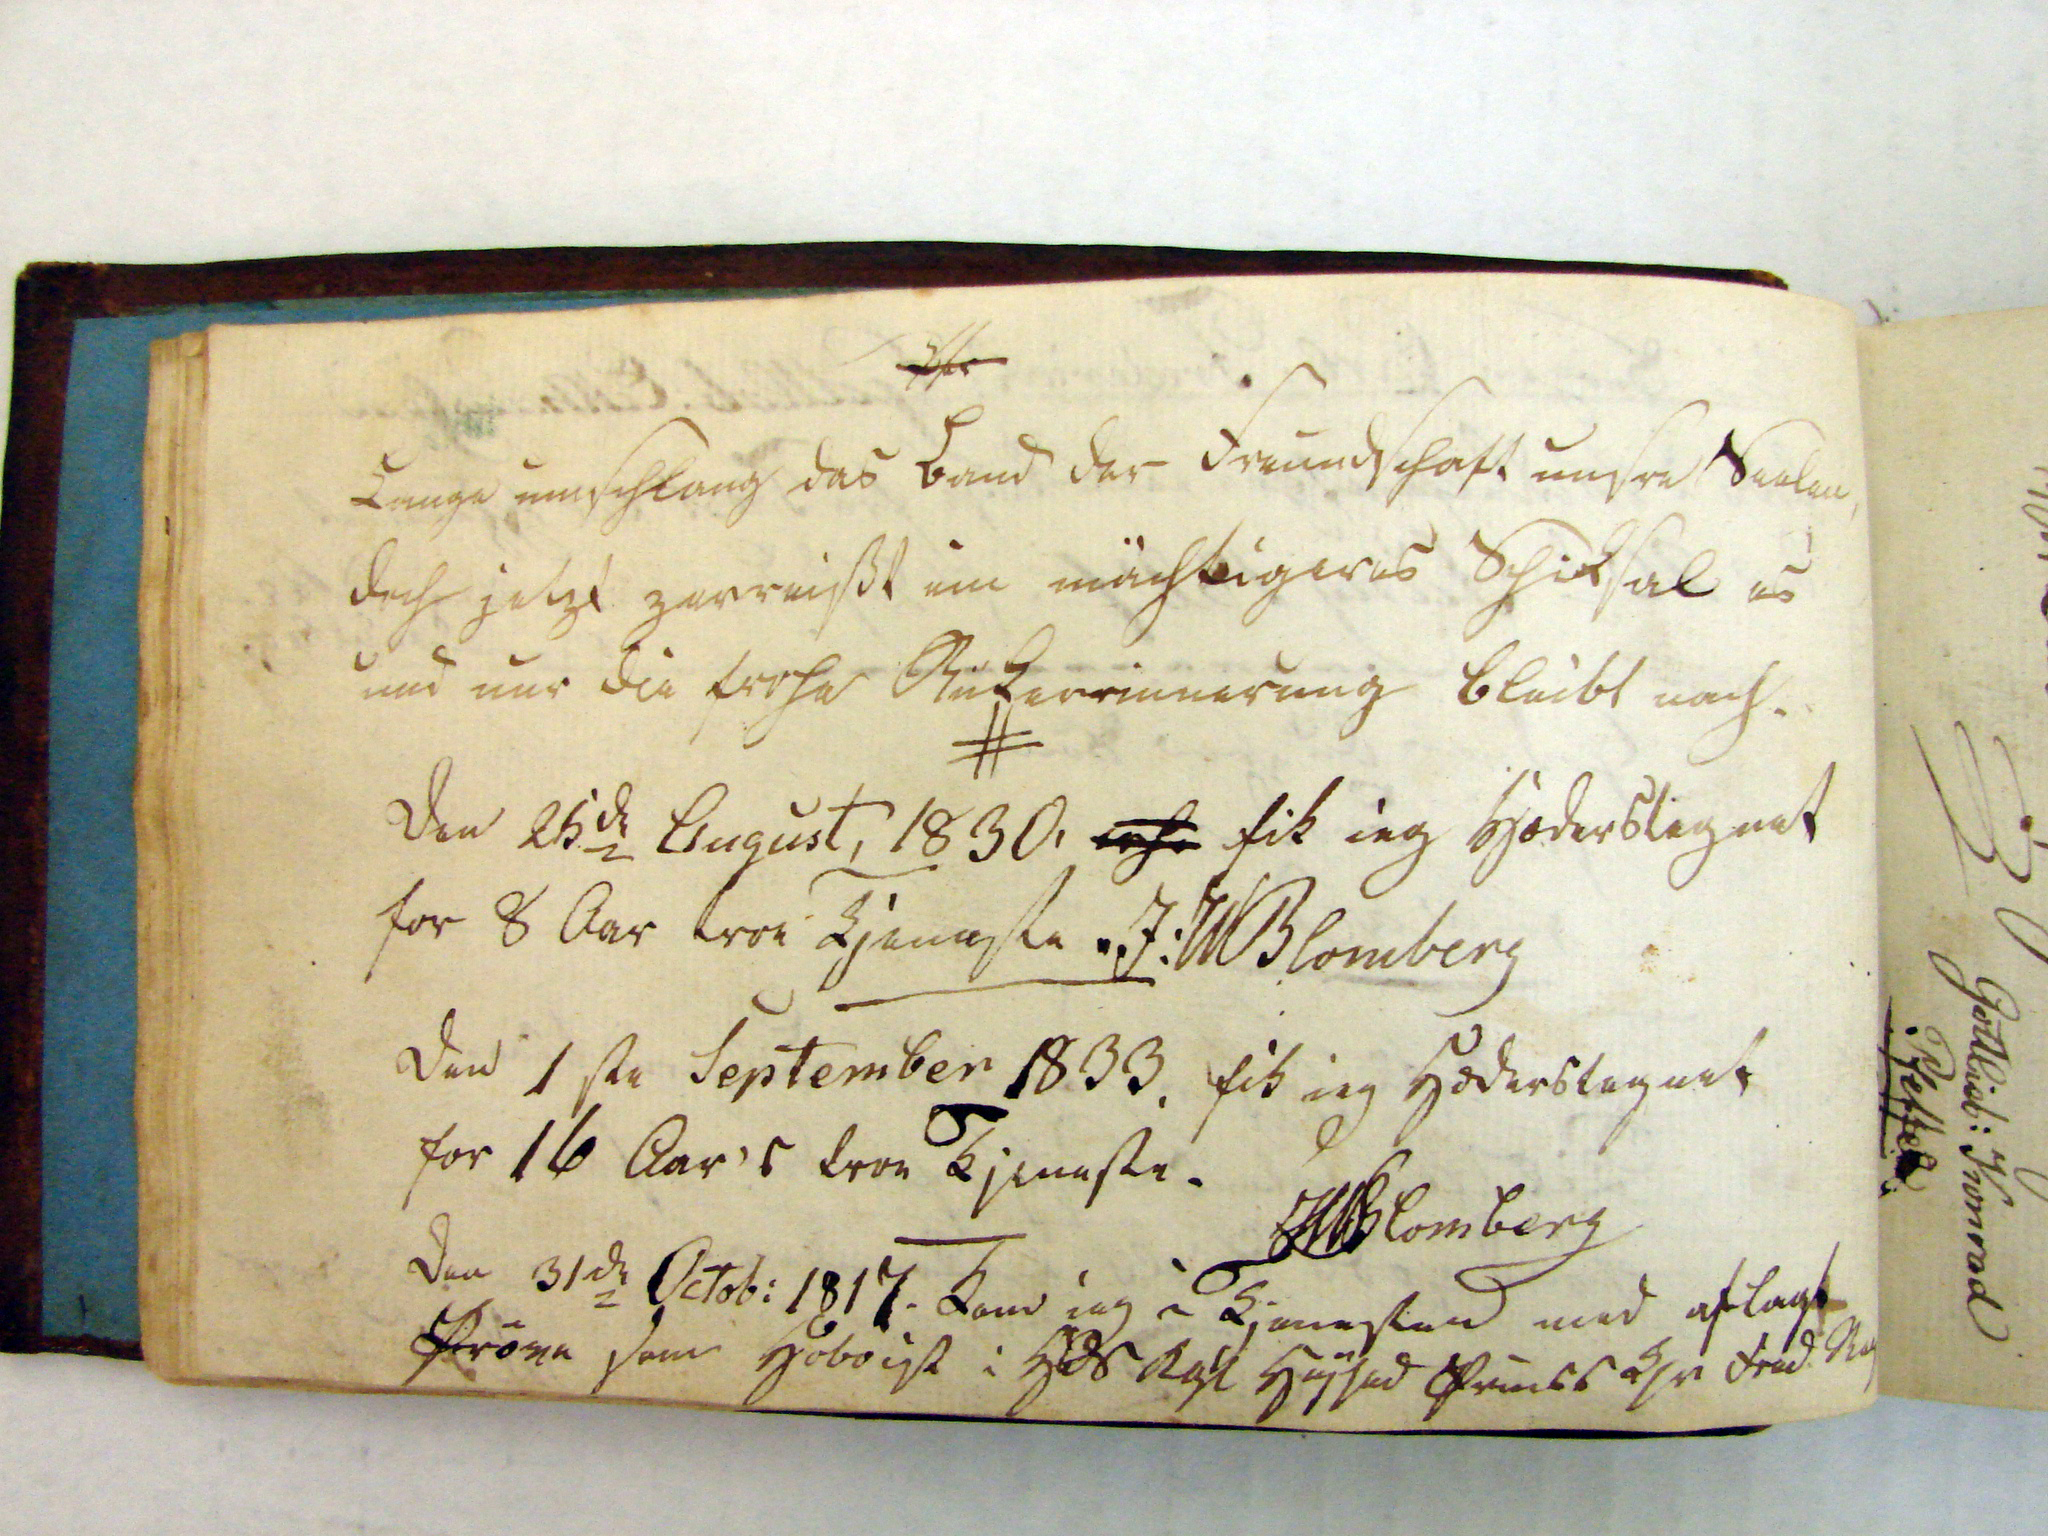 Lange umschlang das Band der Freundschaft unsre Seelen,
doch jetzt zerreißt ein mächtigeres Schiksal es
und nur die frohe Rükerrinnerung bleibt nach.
Den 25de August, 1830. fik ieg Hæderstegnet
for 8 Aar troe Tjeneste. J: W Blomberg
Den 1ste September 1833. fik ieg Hæderstegnet
for 16 Aar's troe Tjeneste.
JWBlomberg
Den 31de Octob: 1817. kom ieg i Tjenesten med aflagt
Pröve som Hoboist i HdS Kgl Høyhed Prinss Chr Fred. Reg
Gottlieb: Konrad